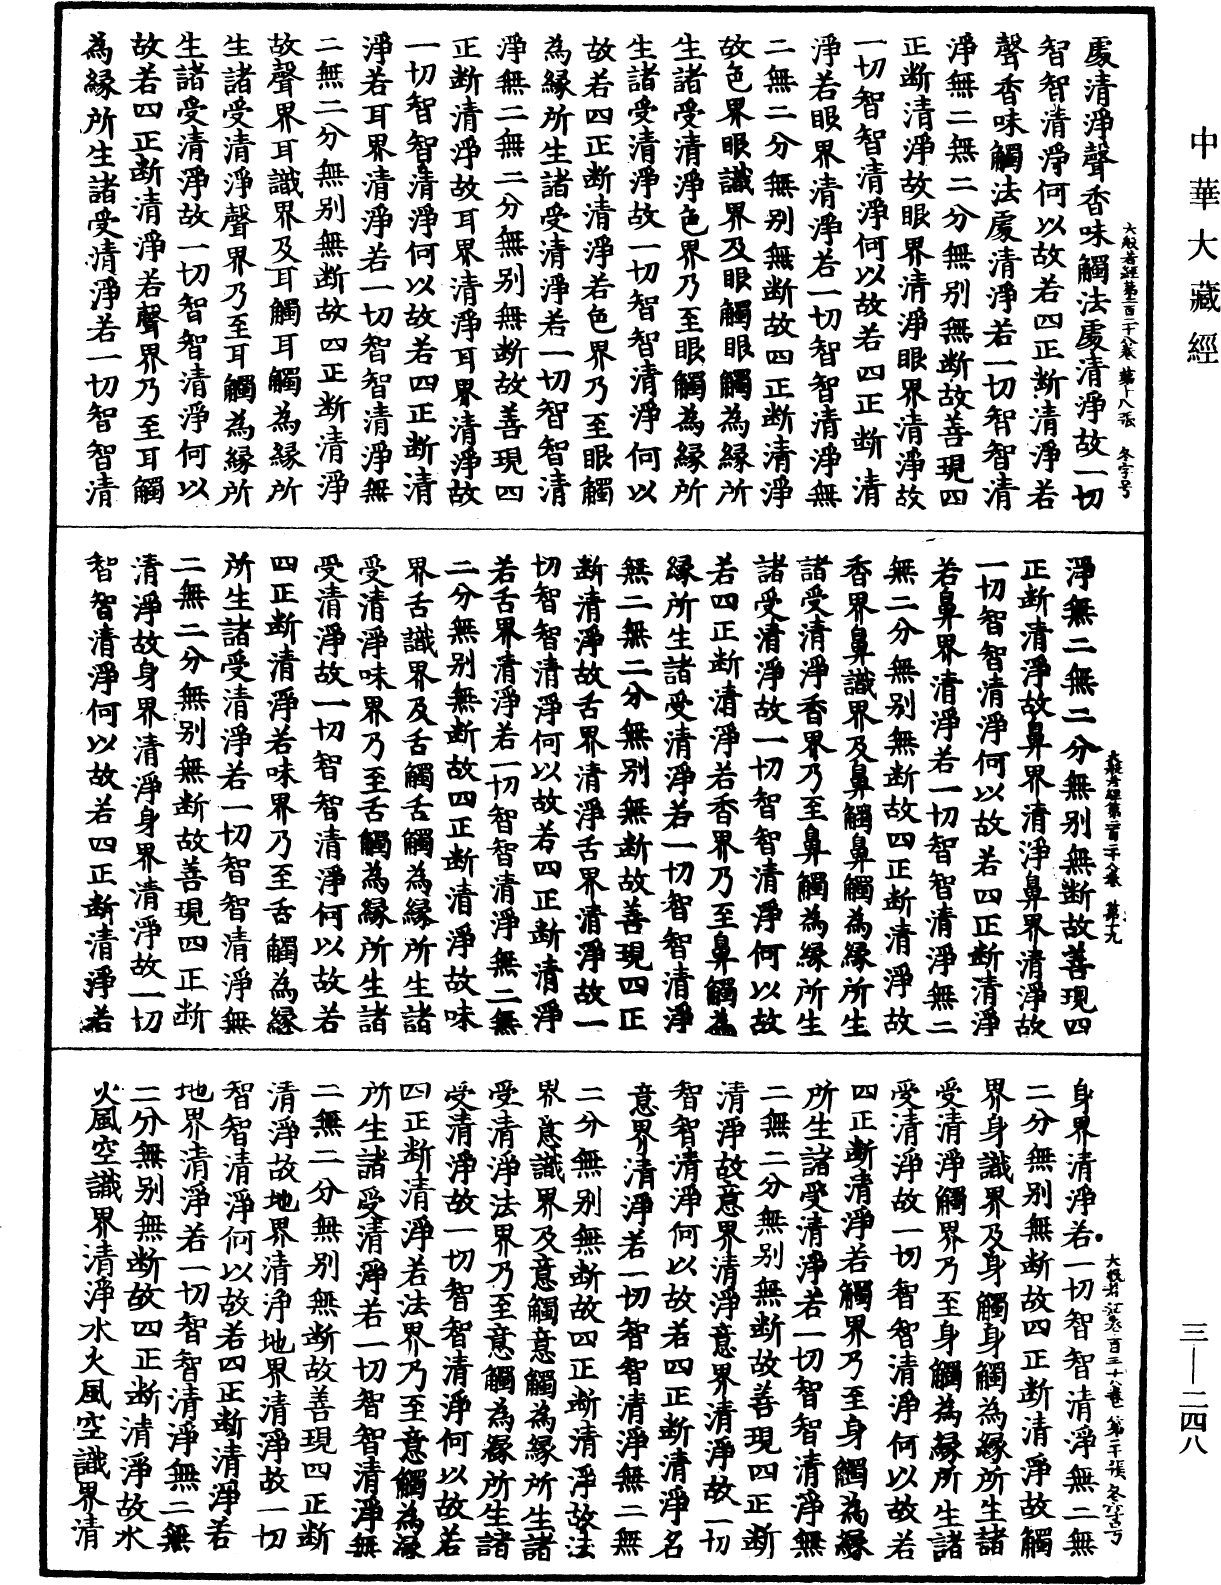 中華大藏經
處清淨聲香味觸法處清淨故一切
智智清淨何以故若四正断清淨若
聲香味觸法處清淨若一切智智清
淨無二無二分無别無断故善現四
正断清淨故眼界清淨眼界清淨故
一切智智清淨何以故若四正断清
淨若眼界清淨若一切智智清淨無
二無二分無别無断故四正断清淨
故色界眼識界及眼觸眼觸為縁所
生諸受清淨色界乃至眼觸為縁所
生諸受清淨故一切智智清淨何以
故若四正断清淨若色界乃至眼觸
為縁所生諸受清淨若一切智智清
淨無二無二分無别無断故善現四
正断清淨故耳界清淨耳界清淨故
一切智智清淨何以故若四正断清
淨若耳界清淨若一切智智清淨無
二無二分無别無断故四正断清淨
故聲界耳識界及耳觸耳觸為縁所
生諸受清淨聲界乃至耳觸為縁所
生諸受清淨故一切智智清淨何以
故若四正断清淨若聲界乃至耳觸
為縁所生諸受清淨若一切智智清
淨無二無二分無别無断故善現四
正断清淨故鼻界清淨鼻界清淨故
一切智智清淨何以故若四正断清淨
若鼻界清淨若一切智智清淨無二
無二分無别無断故四正断清淨故
香界鼻識界及鼻觸鼻觸為縁所生
諸受清淨香界乃至鼻觸為縁所生
諸受清淨故一切智智清淨何以故
若四正断清淨若香界乃至鼻觸為
縁所生諸受清淨若一切智智清淨
無二無二分無别無断故善現四正
断清淨故舌界清淨舌界清淨故一
切智智清淨何以故若四正断清淨
若舌界清淨若一切智智清淨無二無
二分無别無断故四正断清淨故味
界舌識界及舌觸舌觸為縁所生諸
受清淨味界乃至舌觸為縁所生諸
受清淨故一切智智清淨何以故若
四正断清淨若味界乃至舌觸為縁
所生諸受清淨若一切智智清淨無
二無二分無别無断故善現四正断
清淨故身界清淨身界清淨故一切
智智清淨何以故若四正断清淨若
身界清淨若一切智智清淨無二無
二分無别無断故四正断清淨故觸
界身識界及身觸身觸為縁所生諸
受清淨觸界乃至身觸為縁所生諸
受清淨故一切智智清淨何以故若
四正断清淨若觸界乃至身觸為縁
所生諸受清淨若一切智智清淨無
二無二分無别無断故善現四正断
清淨故意界清淨意界清淨故一切
智智清淨何以故若四正断清淨名
意界清淨若一切智智清淨無二無
二分無别無断故四正断清淨故法
界意識界及意觸意觸為縁所生諸
受清淨法界乃至意觸為縁所生諸
受清淨故一切智智清淨何以故若
四正断清淨若法界乃至意觸為縁
所生諸受清淨若一切智智清淨無
二無二分無别無断故善現四正断
清淨故地界清淨地界清淨故一切
智智清淨何以故若四正断清淨若
地界清淨若一切智智清淨無二無
二分無别無断故四正断清淨故水
火風空識界清淨水火風空識界清
三—二四八